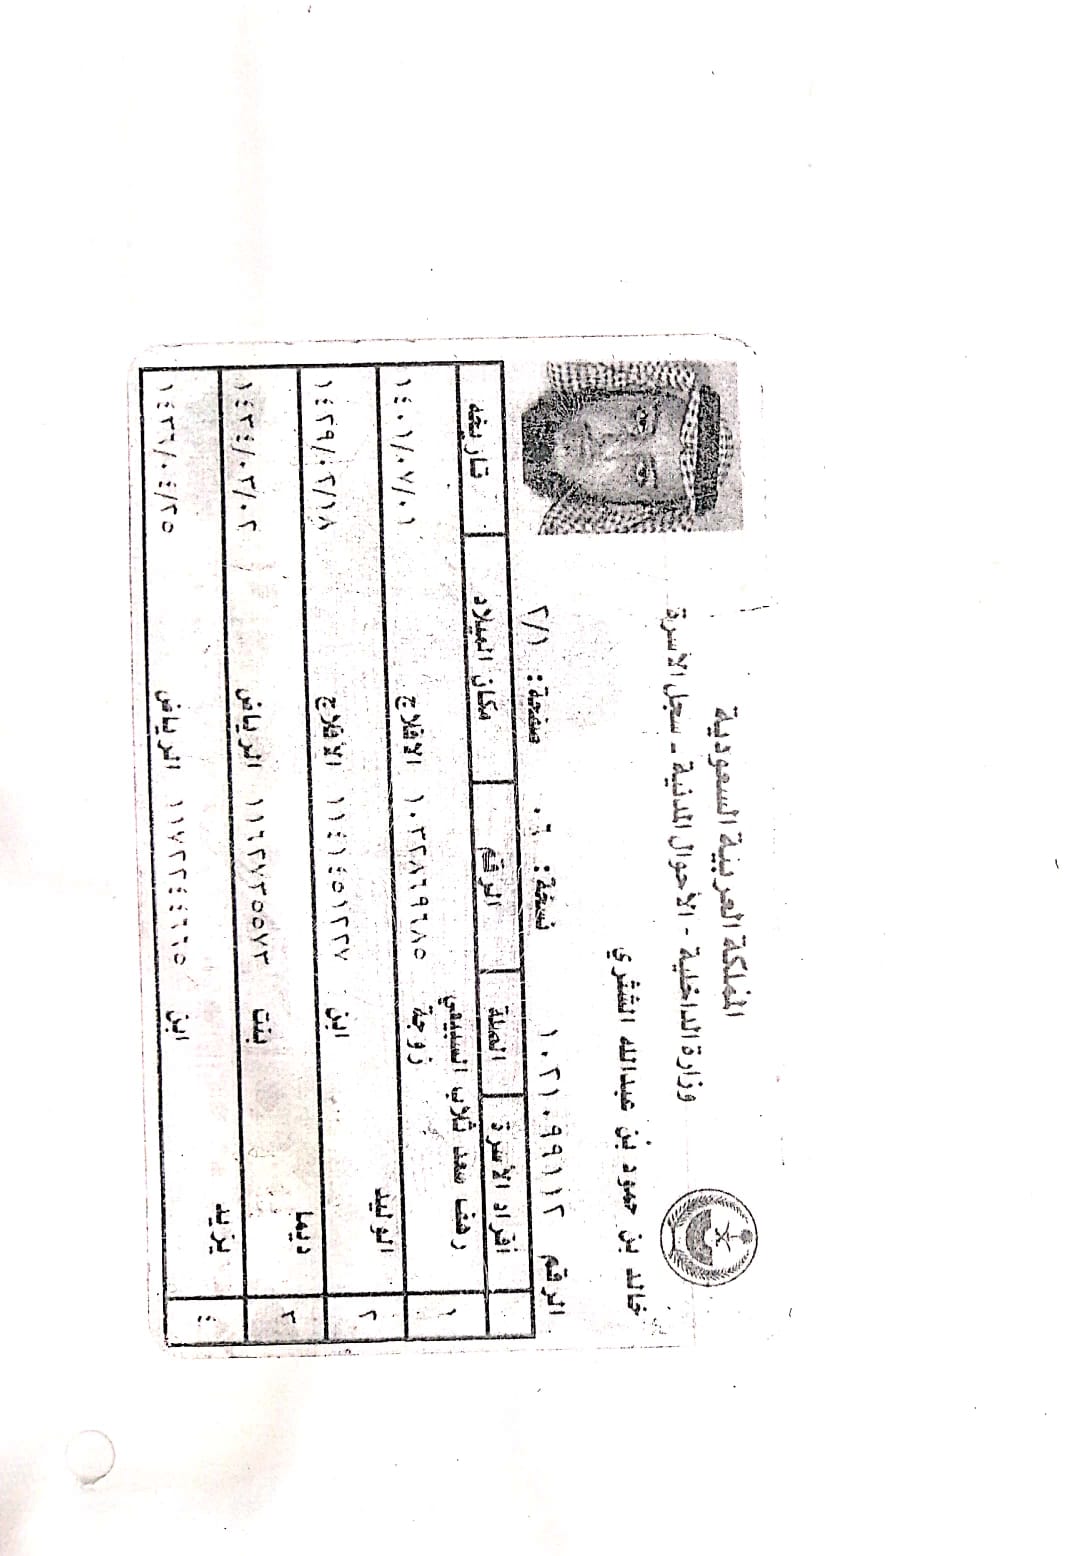 المملكة العربية السعودية
وزارة الداخلية - الأحوال المدنية - سجل الأسرة
خالد بن حمود بن عبدالله الشثري
الرقم ١٠٢١٠٩٩١١٢ نسخة: ٠٦ صفحة: ٢/١
أفراد الأسرة الصلة الرقم مكان الميلاد تاريخه
١ سعد ثلاب السبيعي زوجة الافلاج ١٤٠١/٠٧/٠١
٢ الوليد ابن ١١٤١٤٥١٢٢٧ الأفلاج ١٤٢٩/٠٢/١٨
٣ ديما بنت الرياض ١٤٣٤/٠٣/٠٢
٤ يزيد ابن الرياض ١٤٣٦/٠٤/٢٥